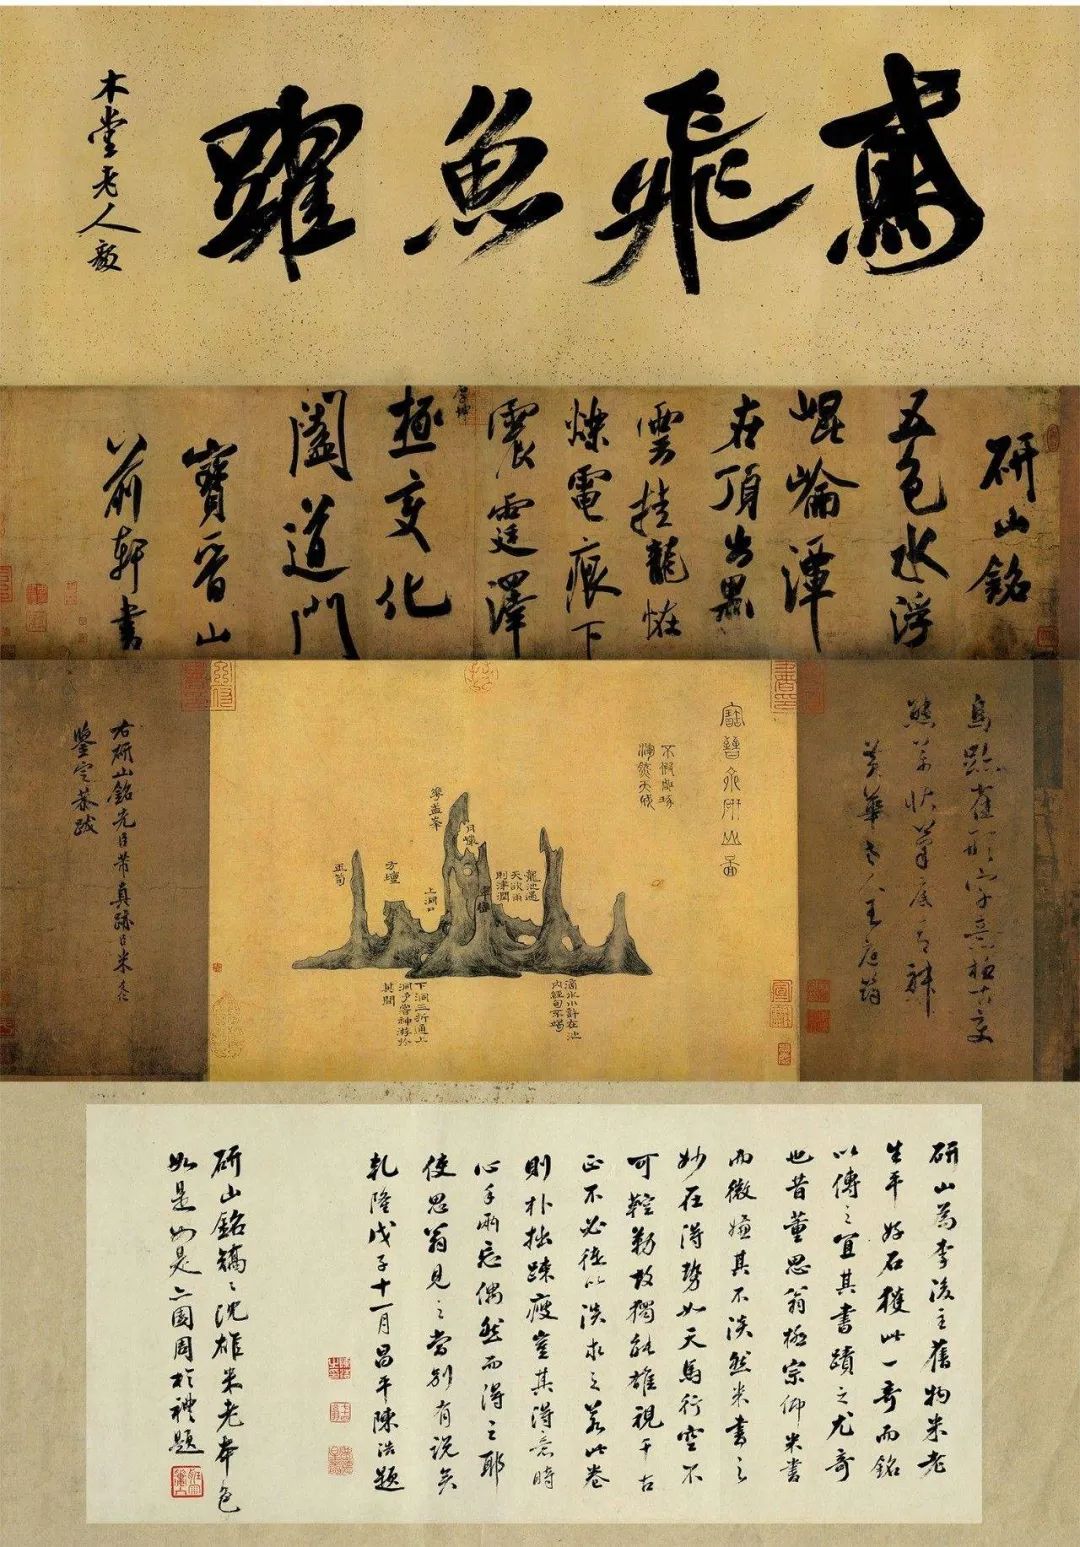 鳶飛魚躍
木堂老人毅
研山銘
五色水浮
崐崘潭
在頂出黑
雲挂龍怪
爍電痕下
震霆澤
極變化
闔道門
寶晉山
前軒書
鳥跡雀形字意極古變
態萬狀筆底有神
黃華老人王庭筠
寶晉齋研山圖
不假雕琢
渾然天成
華蓋峯
月巖
翠巒
方壇
玉筍
上洞口
龍池遇
天欲雨
則津潤
下洞三折通上
洞予嘗神游於
其間
滴水小許在池
內經旬不竭
右研山銘先臣芾真跡臣米友仁
鑒定恭跋
研山為李後主舊物米老
生平好石獲此一奇而銘
以傳之宜其書蹟之尤奇
也昔董思翁極宗仰米書
而微嫌其不淡然米書之
妙在得勢如天馬行空不
可鞚勒故獨能雄視千古
正不必徒以淡求之若此卷
則朴拙疎瘦豈其得意時
心手兩忘偶然而得之耶
使思翁見之當別有說矣
乾隆戊子十一月昌平陳浩題
研山銘鐫之沈雄米老本色
如是如是二園周於禮題